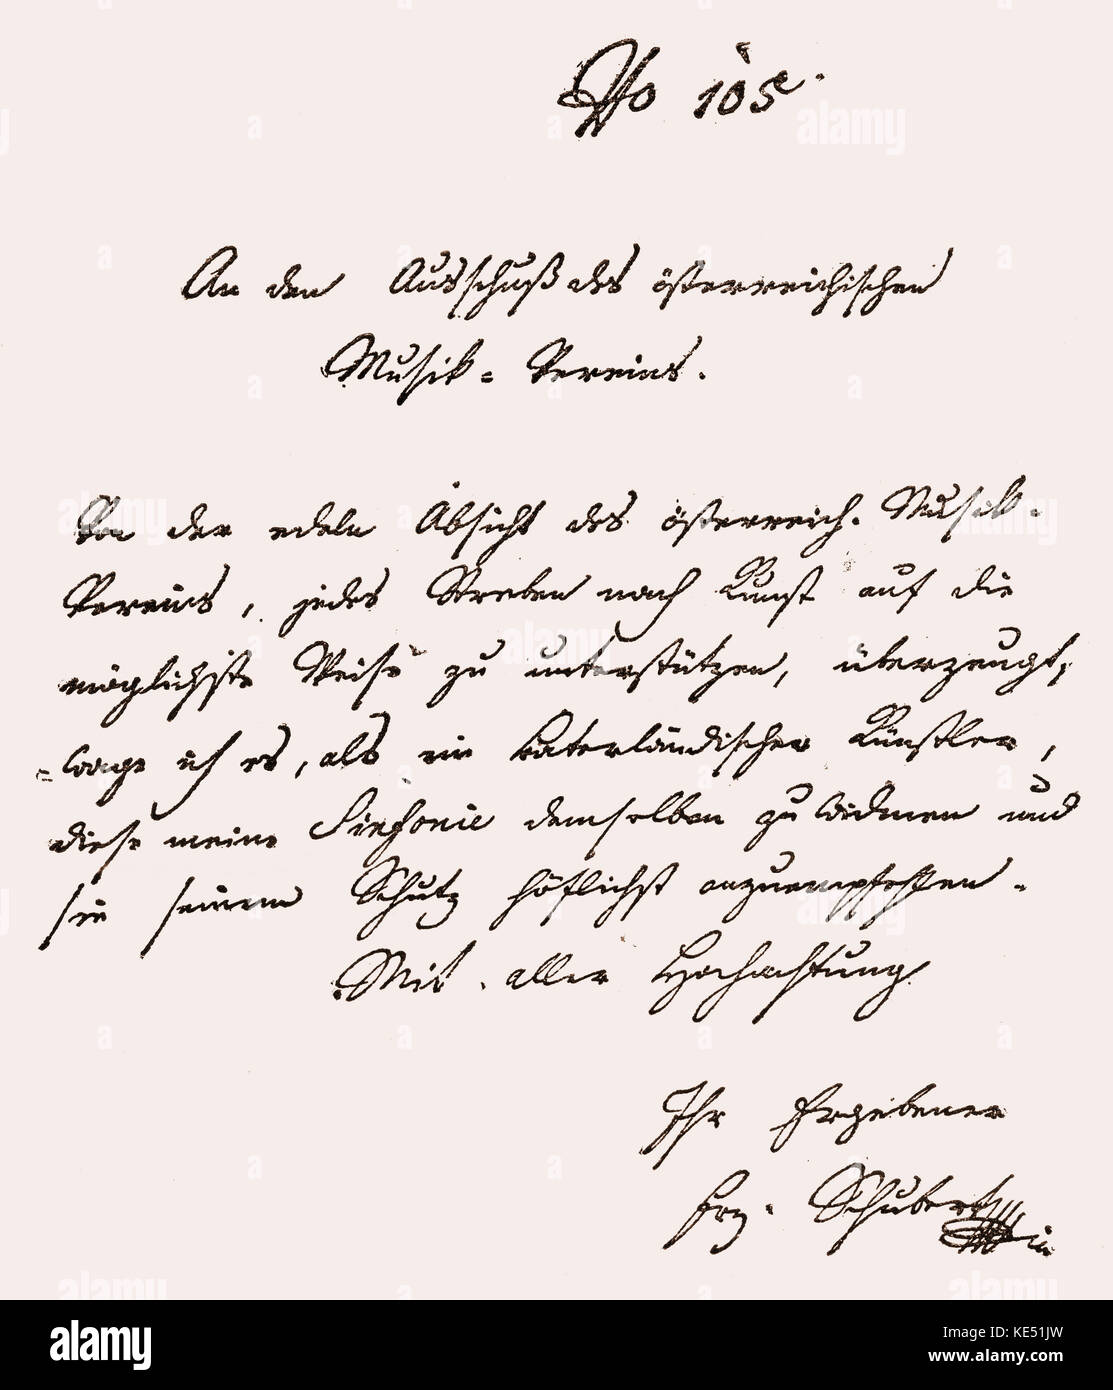 No 105.
An den Ausschuß des österreichischen
Musik-Vereins.
Von der edeln Absicht des österreich. Musik-
Vereins, jedes Streben nach Kunst auf die
möglichste Weise zu unterstützen, überzeugt,
wage ich es, als ein vaterländischer Künstler,
diese meine Sinfonie demselben zu widmen und
sie seinem Schutz höflichst anzuempfehlen.
Mit aller Hochachtung
Ihr Ergebener
Frz. Schubert
alamy
Image ID: KE51JW
www.alamy.com